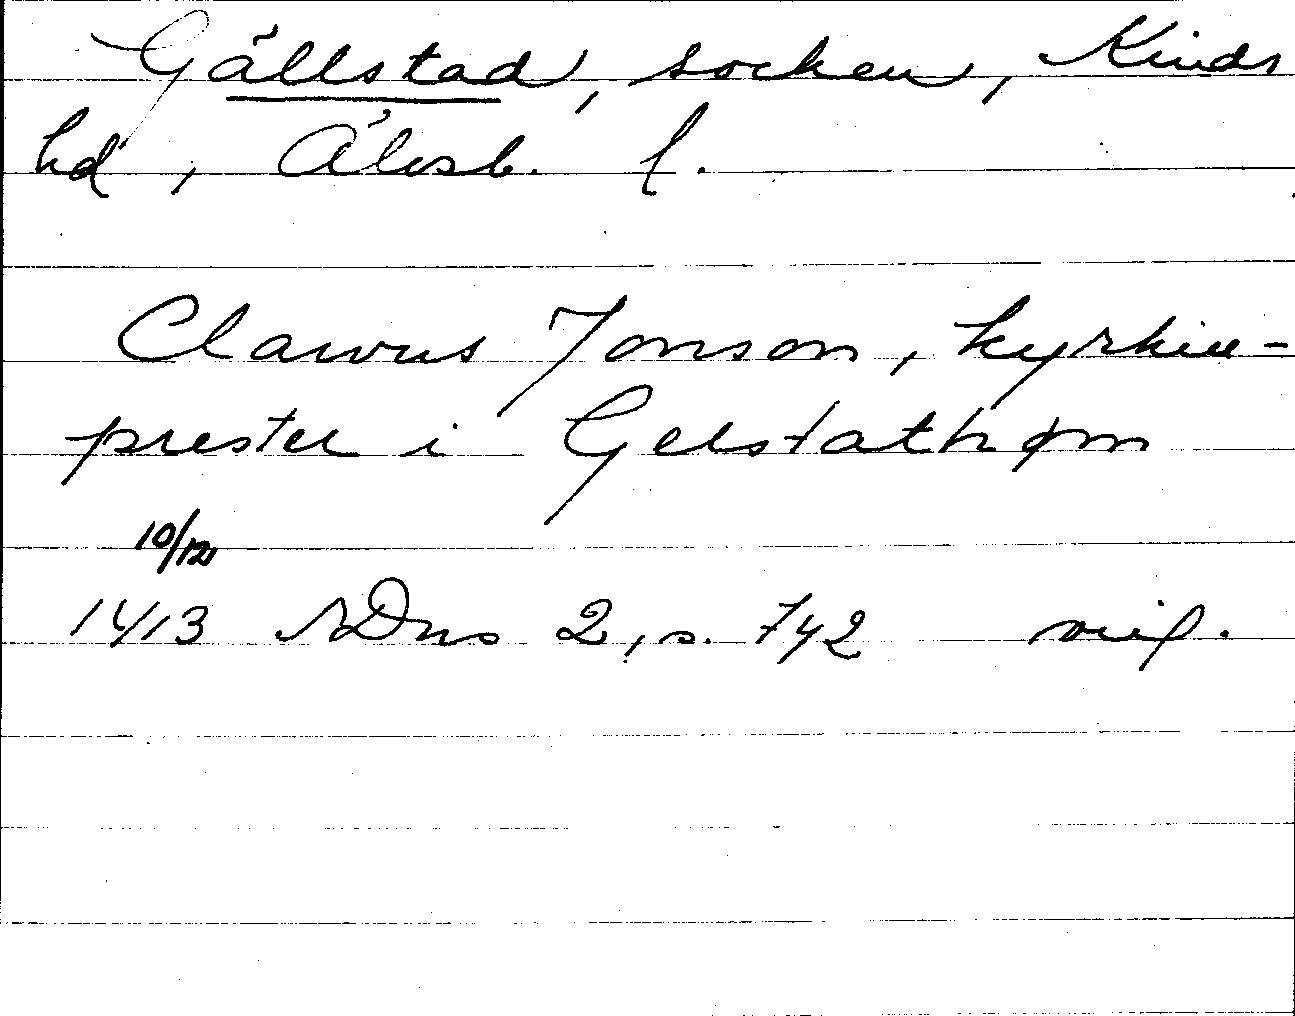 Gällstad, socken, Kinds
hd, Älvsb. l.
Clawus Jonson, kyrkiu-
prester i Gelstathøm
10/12
1413 SDns 2, s. 742